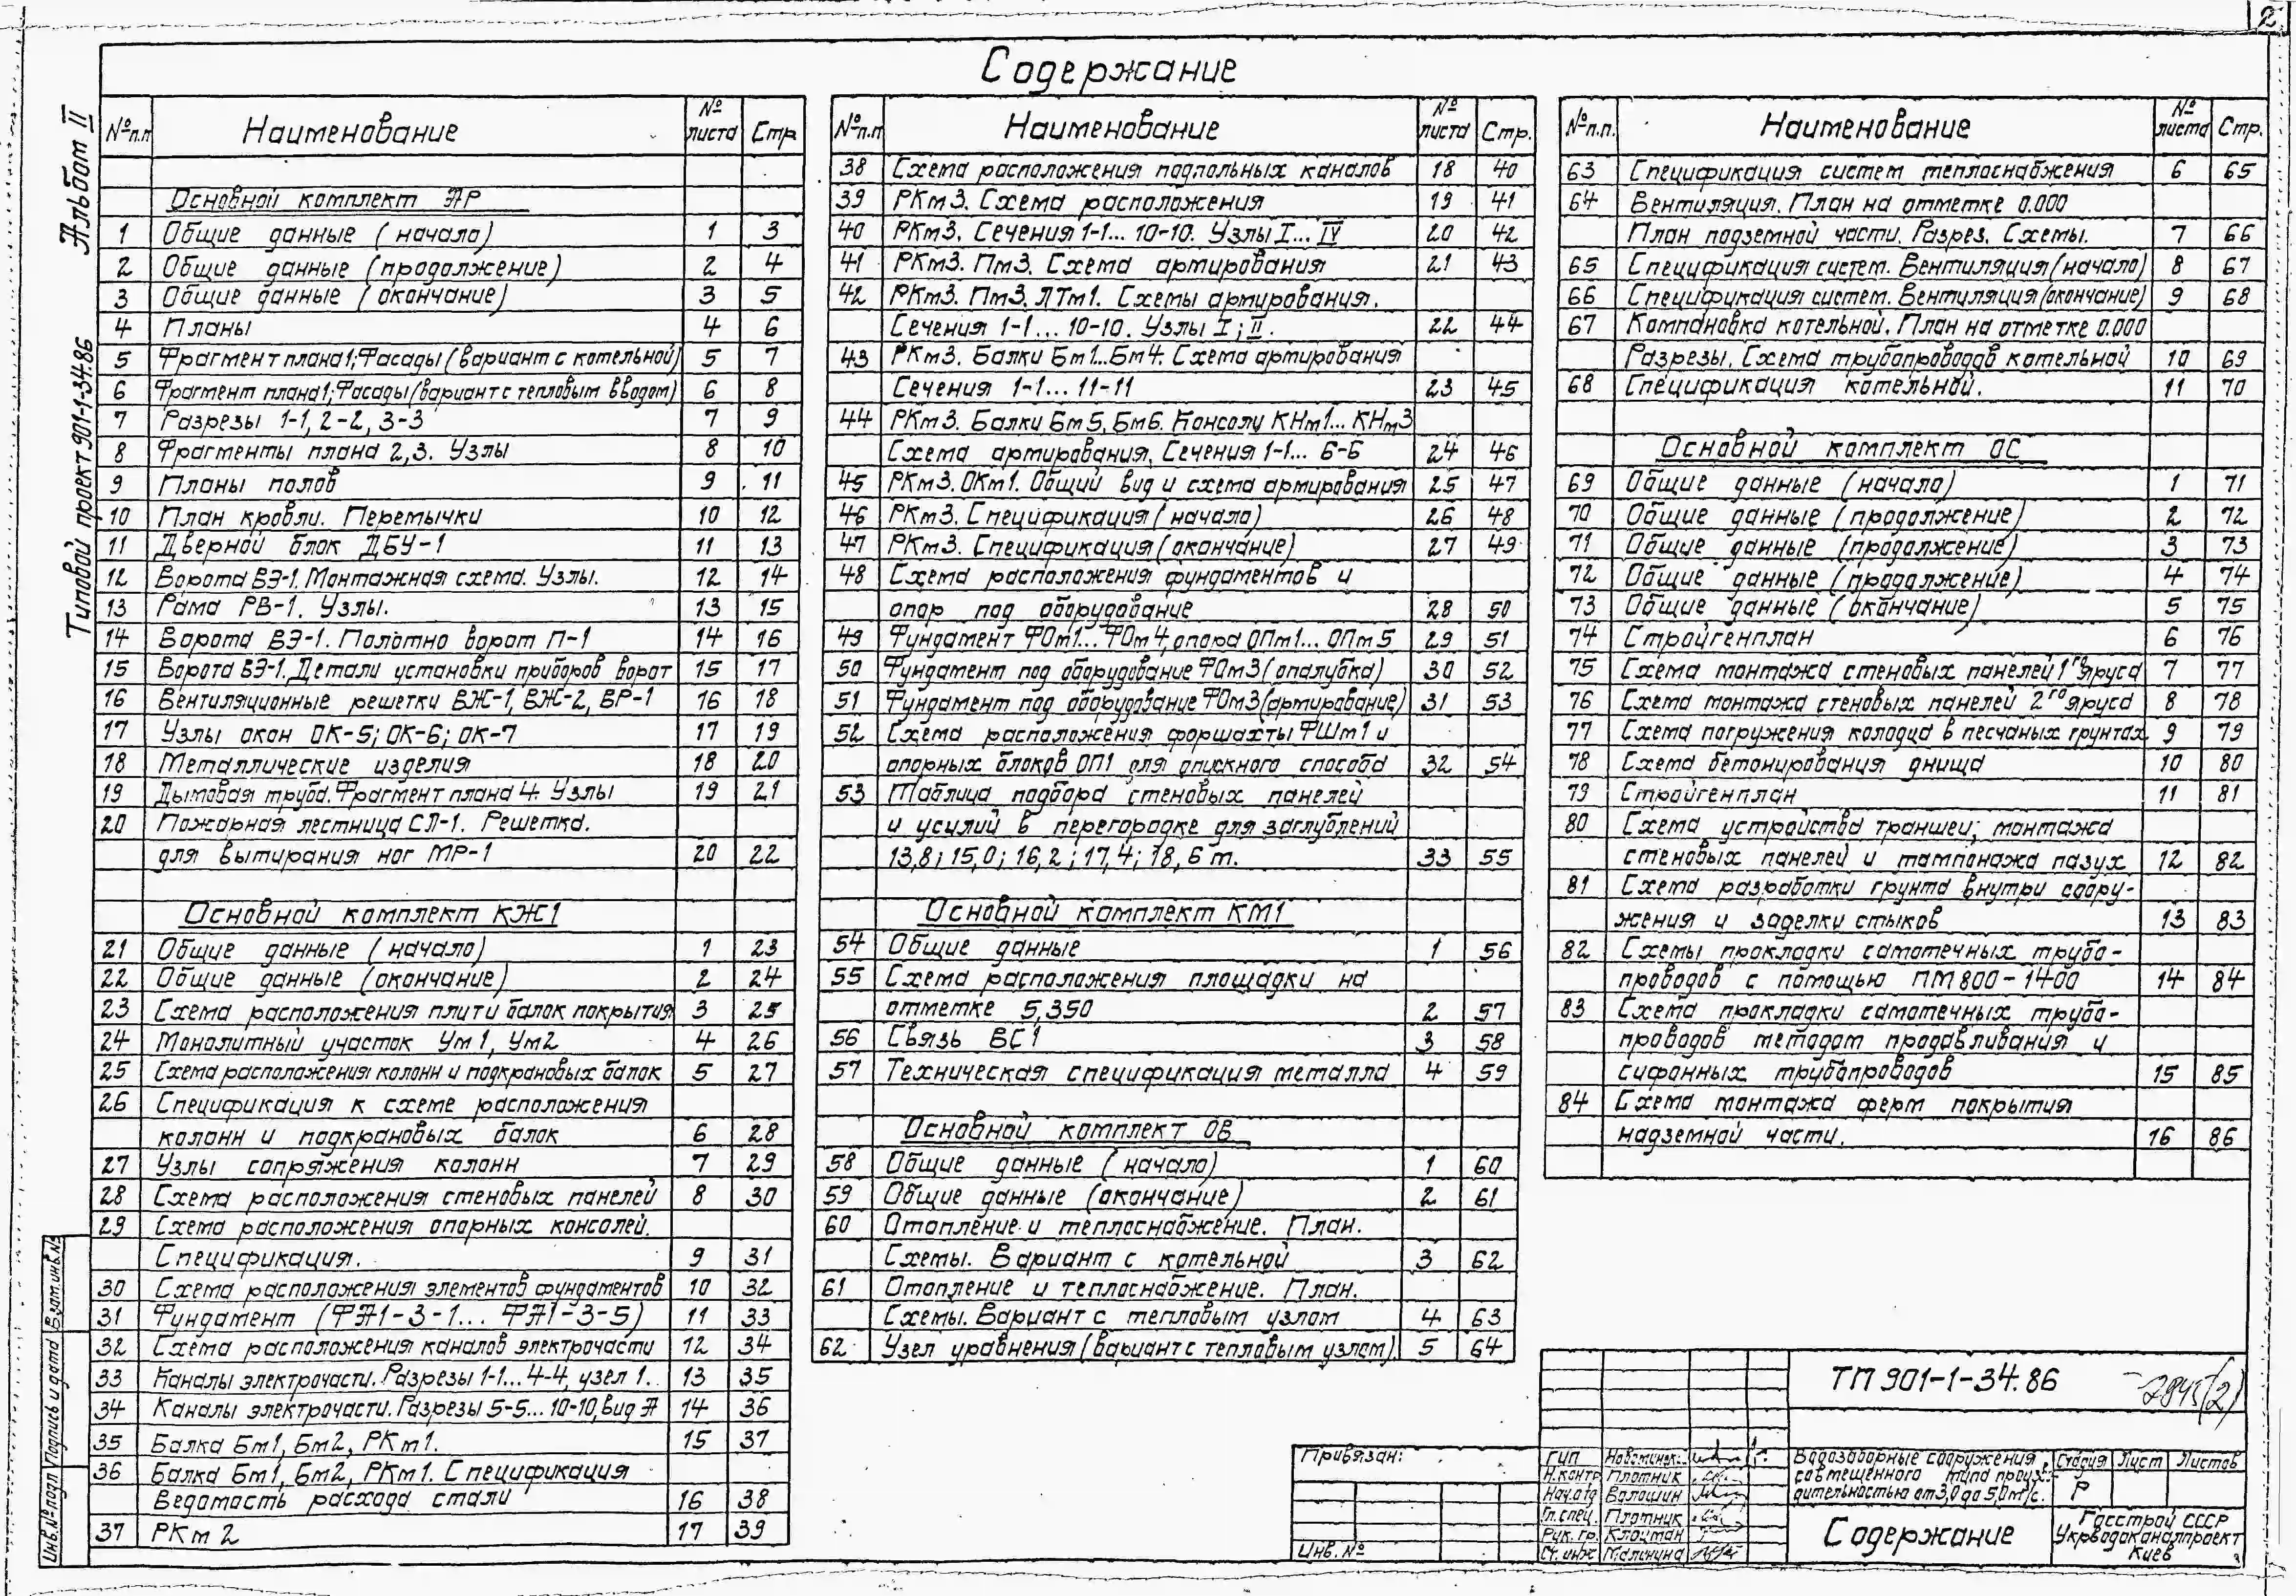 2
Содержание
Типовой проект 901-1-34.86 Альбом II
№п.п Наименование № листа Стр
Основной комплект АР
1 Общие данные (начало) 1 3
2 Общие данные (продолжение) 2 4
3 Общие данные (окончание) 3 5
4 Планы 4 6
5 Фрагмент плана 1; Фасады (вариант с котельной) 5 7
6 Фрагмент плана 1; Фасады (вариант с тепловым вводом) 6 8
7 Разрезы 1-1, 2-2, 3-3 7 9
8 Фрагменты плана 2,3. Узлы 8 10
9 Планы полов 9 11
10 План кровли. Перемычки 10 12
11 Дверной блок ДБУ-1 11 13
12 Ворота ВЭ-1. Монтажная схема. Узлы. 12 14
13 Рама РВ-1. Узлы. 13 15
14 Ворота ВЭ-1. Полотно ворот П-1 14 16
15 Ворота ВЭ-1. Детали установки приборов ворот 15 17
16 Вентиляционные решетки ВЖ-1, ВЖ-2, ВР-1 16 18
17 Узлы окон ОК-5; ОК-6; ОК-7 17 19
18 Металлические изделия 18 20
19 Дымовая труба. Фрагмент плана 4. Узлы 19 21
20 Пожарная лестница СЛ-1. Решетка.
для вытирания ног МР-1 20 22
Основной комплект КЖ1
21 Общие данные (начало) 1 23
22 Общие данные (окончание) 2 24
23 Схема расположения плит и балок покрытия 3 25
24 Монолитный участок Ум1, Ум2 4 26
25 Схема расположения колонн и подкрановых балок 5 27
26 Спецификация к схеме расположения
колонн и подкрановых балок 6 28
27 Узлы сопряжения колонн 7 29
28 Схема расположения стеновых панелей 8 30
29 Схема расположения опорных консолей.
Спецификация. 9 31
30 Схема расположения элементов фундаментов 10 32
31 Фундамент (ФА1-3-1... ФА1-3-5) 11 33
32 Схема расположения каналов электрочасти 12 34
33 Каналы электрочасти. Разрезы 1-1... 4-4, узел 1. 13 35
34 Каналы электрочасти. Разрезы 5-5... 10-10, вид А 14 36
35 Балка Бм1, Бм2, РКм1. 15 37
36 Балка Бм1, Бм2, РКм1. Спецификация
Ведомость расхода стали 16 38
37 РКм2 17 39
№п.п Наименование № листа Стр.
38 Схема расположения подпольных каналов 18 40
39 РКм3. Схема расположения 19 41
40 РКм3. Сечения 1-1... 10-10. Узлы I... IV 20 42
41 РКм3. Пм3. Схема армирования 21 43
42 РКм3. Пм3. ЛТм1. Схемы армирования.
Сечения 1-1... 10-10. Узлы I; II. 22 44
43 РКм3. Балки Бм1...Бм4. Схема армирования
Сечения 1-1... 11-11 23 45
44 РКм3. Балки Бм5, Бм6. Консолу КНм1... КНм3
Схема армирования. Сечения 1-1... 6-6 24 46
45 РКм3. ОКм1. Общий вид и схема армирования 25 47
46 РКм3. Спецификация (начало) 26 48
47 РКм3. Спецификация (окончание) 27 49
48 Схема расположения фундаментов и
опор под оборудование 28 50
49 Фундамент ФОм1... ФОм4, опора ОПм1... ОПм5 29 51
50 Фундамент под оборудование ФОм3 (опалубка) 30 52
51 Фундамент под оборудование ФОм3 (армирование) 31 53
52 Схема расположения форшахты ФШм1 и
опорных блоков ОП1 для опускного способа 32 54
53 Таблица подбора стеновых панелей
и усилий в перегородке для заглублений
13,8; 15,0; 16,2; 17,4; 18,6 м. 33 55
Основной комплект КМ1
54 Общие данные 1 56
55 Схема расположения площадки на
отметке 5,350 2 57
56 Связь ВС1 3 58
57 Техническая спецификация металла 4 59
Основной комплект ОВ
58 Общие данные (начало) 1 60
59 Общие данные (окончание) 2 61
60 Отопление и теплоснабжение. План.
Схемы. Вариант с котельной 3 62
61 Отопление и теплоснабжение. План.
Схемы. Вариант с тепловым узлом 4 63
62 Узел уравнения (вариант с тепловым узлом). 5 64
№п.п. Наименование № листа Стр.
63 Спецификация систем теплоснабжения 6 65
64 Вентиляция. План на отметке 0.000
План подземной части. Разрез. Схемы. 7 66
65 Спецификация систем. Вентиляция (начало) 8 67
66 Спецификация систем. Вентиляция (окончание) 9 68
67 Компановка котельной. План на отметке 0.000
Разрезы. Схема трубопроводов котельной 10 69
68 Спецификация котельной. 11 70
Основной комплект ОС
69 Общие данные (начало) 1 71
70 Общие данные (продолжение) 2 72
71 Общие данные (продолжение) 3 73
72 Общие данные (продолжение) 4 74
73 Общие данные (окончание) 5 75
74 Стройгенплан 6 76
75 Схема монтажа стеновых панелей 1го яруса 7 77
76 Схема монтажа стеновых панелей 2го яруса 8 78
77 Схема погружения колодца в песчаных грунтах 9 79
78 Схема бетонирования днища 10 80
79 Стройгенплан 11 81
80 Схема устройства траншеи; монтажа
стеновых панелей и тампонажа пазух 12 82
81 Схема разработки грунта внутри соору-
жения и заделки стыков 13 83
82 Схемы прокладки самотечных трубо-
проводов с помощью ПМ800-1400 14 84
83 Схема прокладки самотечных трубо-
проводов методом продавливания и
сифонных трубопроводов 15 85
84 Схема монтажа ферм покрытия
надземной части. 16 86
Инв.№подл Подпись и дата Взам.инв.№
Привязан:
Инв.№
ТП 901-1-34.86
7845(2)
ГИП
Н.контр. Плотник
Нач.отд Волошин
Гл.спец. Плотник
Рук. гр. Клоцман
Ст. инж Малинина
Водозаборные сооружения
совмещенного типа произ-
дительностью от 3,0 до 5,0 м³/с.
Стадия Лист Листов
Р
Содержание
Госстрой СССР
Укрводоканалпроект
Киев
3